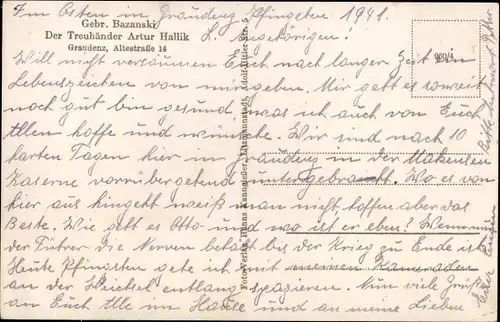 Im Osten in Graudenz Pfingsten 1941.
Gebr. Bazanski
Der Treuhänder Artur Hallik
Graudenz, Altestraße 14
L. Angehörigen!
Will nicht versäumen Euch nach langer Zeit ein
Lebenszeichen von mir geben. Mir geht es soweit
noch gut bin gesund, was ich auch von Euch
Allen hoffe und wünsche. Wir sind nach 10
harten Tagen hier in Graudenz in der Makensen
Kaserne vorrübergehend untergebracht. Wo es von
hier aus hingeht weiß man nicht, hoffen aber das
Beste. Wie geht es Otto und wo ist er eben? Wenn nur
der Führer die Nerven behält bis der Krieg zu Ende ist
Heute Pfingsten gehe ich mit meinen Kameraden
an der Weichsel entlang spazieren. Nun viele Grüße
an Euch Alle im Hause und an meine Lieben
Foto-Verlag Hans
Litzmannstadt, Adolf-Hitler-Str. 5
960/4
Bitte
Euer